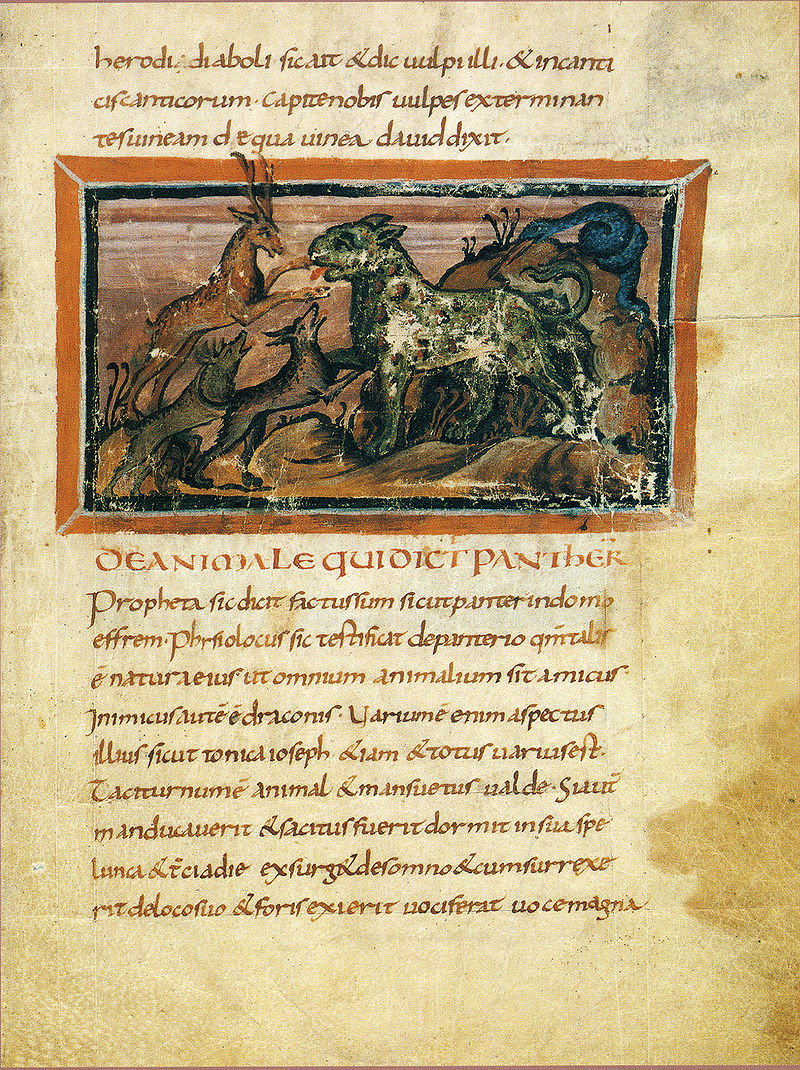 herodis diaboli sicait & dic uulpi illi · & in canti
cis canticorum · capite nobis uulpes exterminan
tes uineam de qua uinea dauid dixit ·
DE ANIMALE QUI DICIT̄ PANTHER̄
Propheta sic dicit factus sum sicut panter in domo
effrem · Phisiolocus sic testificat de panterio qm̄ talis
ē natura eius ut omnium animalium sit amicus ·
Inimicus autē ē draconis · Uarium ē enim aspectus
illius sicut tonica ioseph · & iam & totus uarius est ·
Taciturnum ē animal & mansuetus ualde · Si aut̄
manducauerit & saciatus fuerit dormit in sua spe
lunca & t̄cia die exsurg& de somno & cum surrexe
rit de loco suo & foris exierit uociferat uoce magna